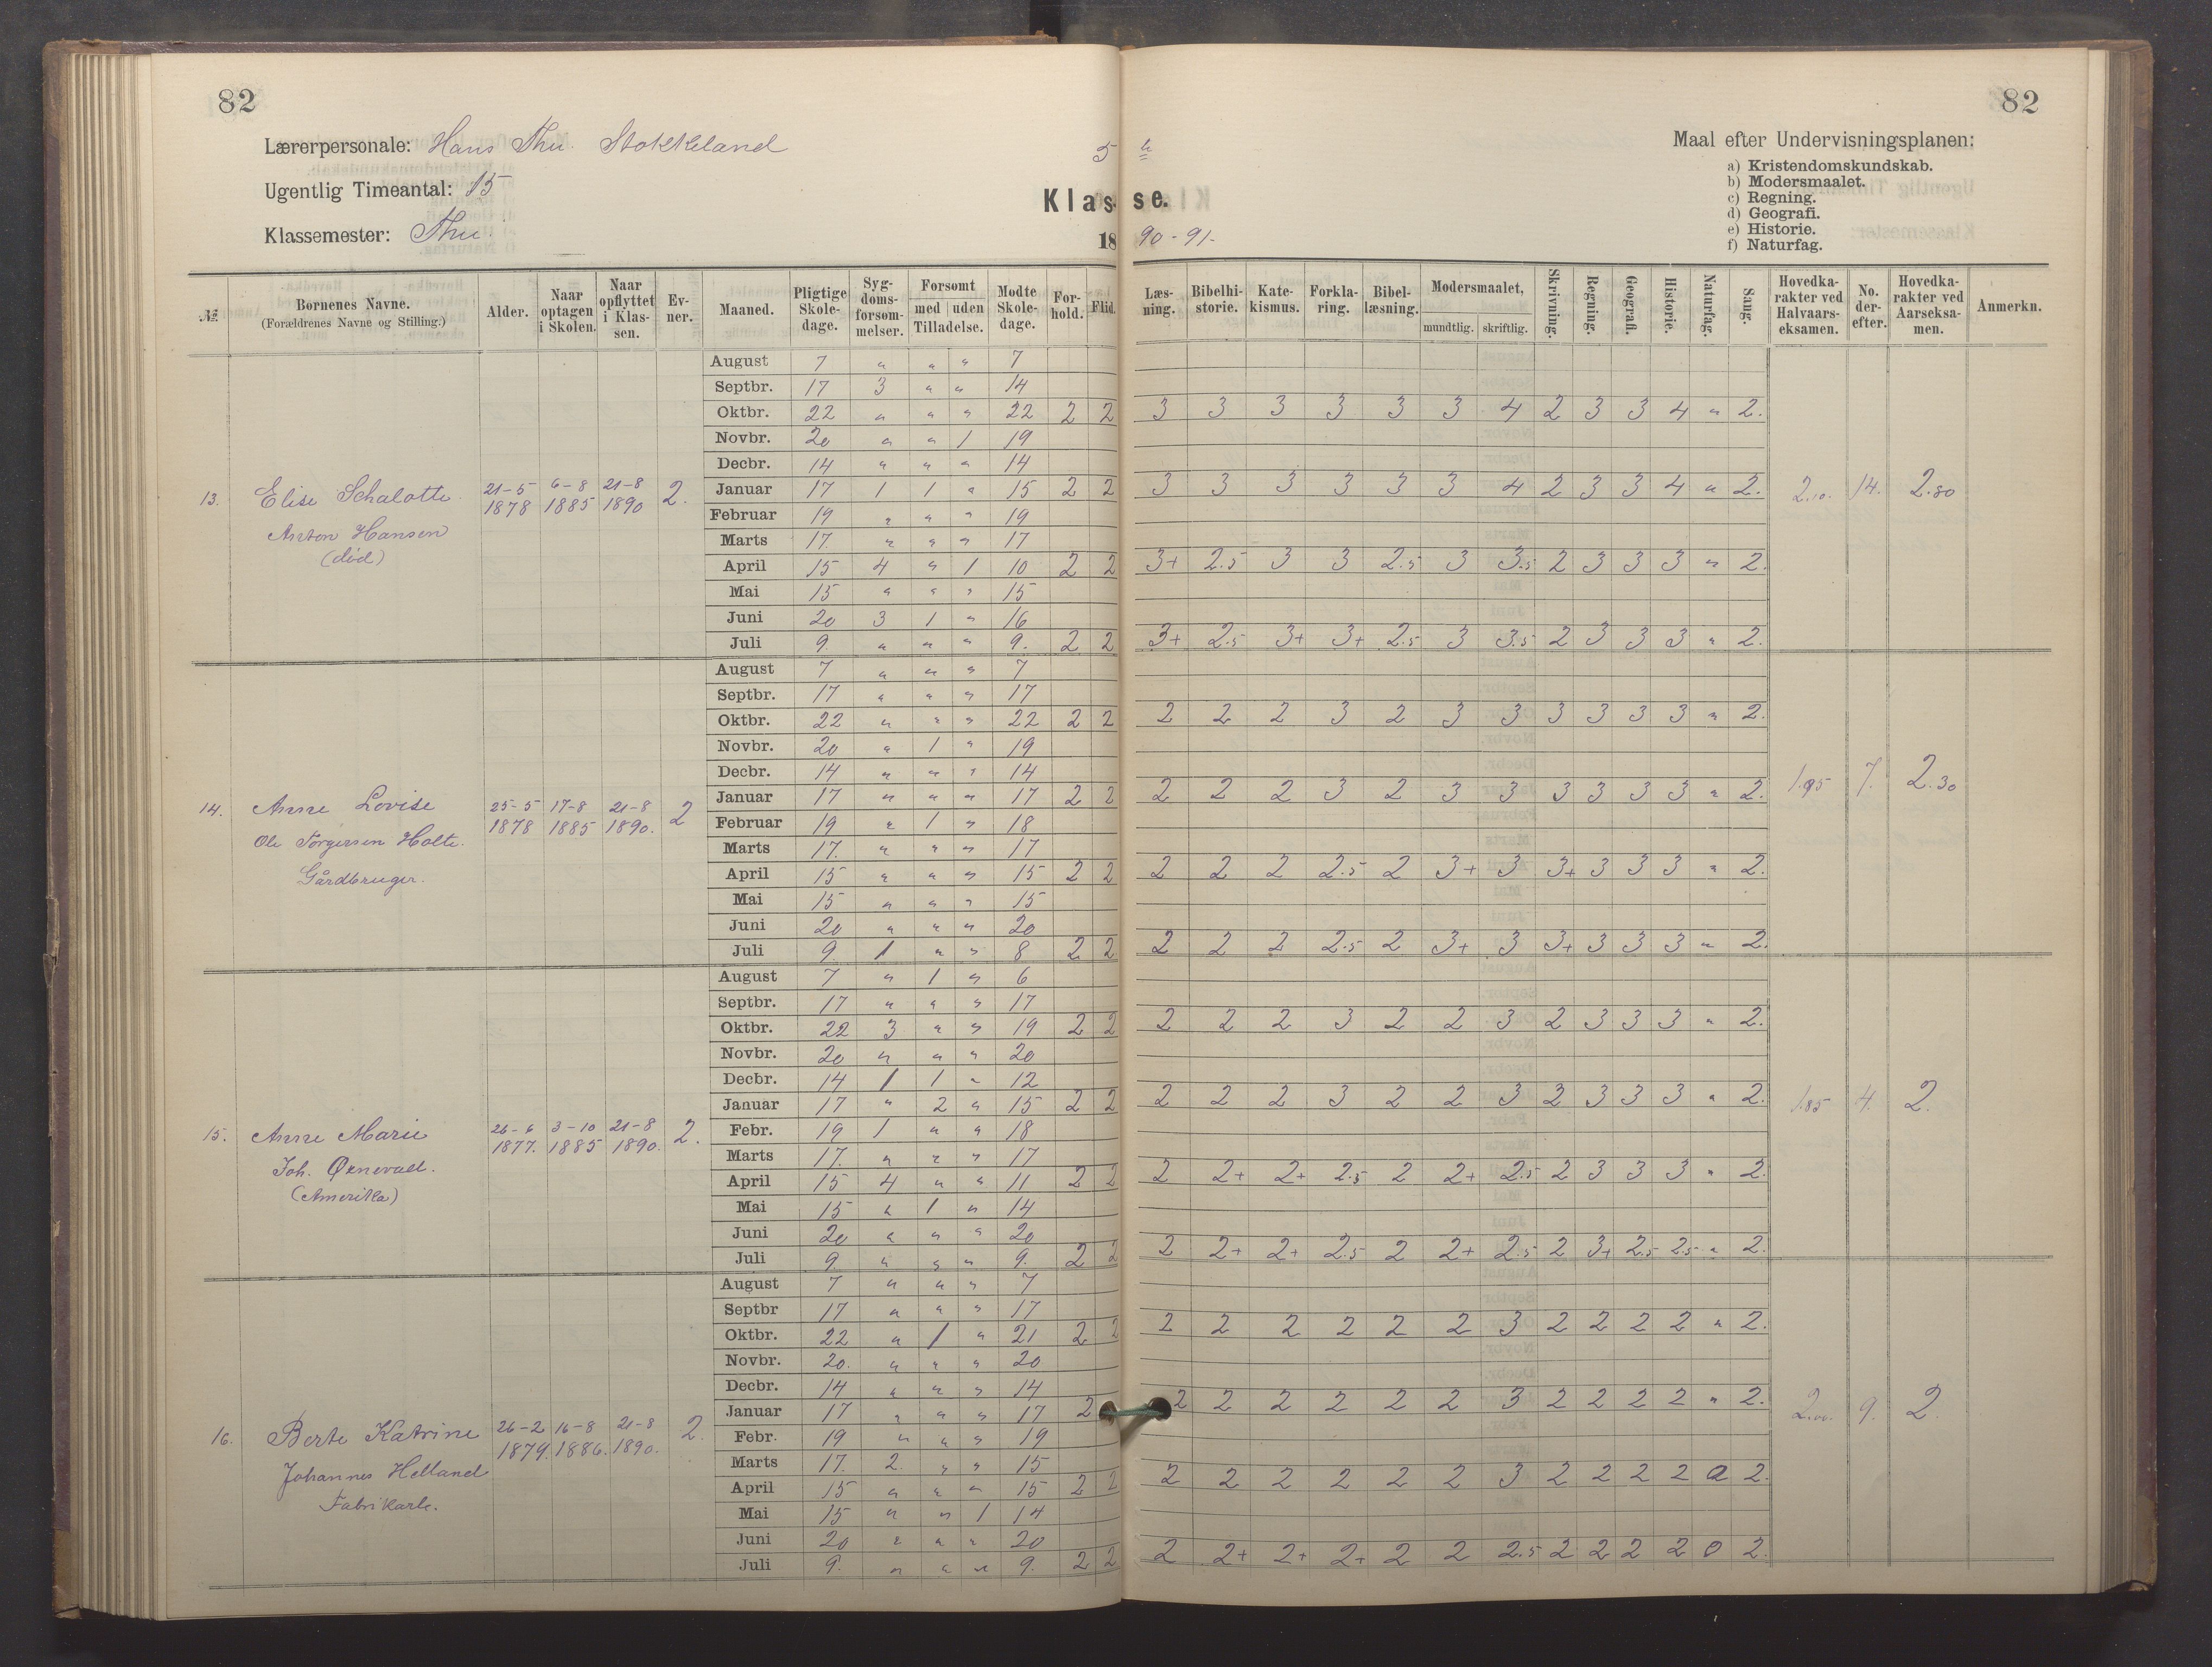 82
82
Lærerpersonale: Hans Thu. Stokkeland
Ugentlig Timeantal: 15
Klassemester: Thu.
5 te
Klasse.
1890-91.
Maal efter Undervisningsplanen:
a) Kristendomskundskab.
b) Modersmaalet.
c) Regning.
d) Geografi.
e) Historie.
f) Naturfag.
№. Børnenes Navne. (Forældrenes Navne og Stilling.) Alder. Naar optagen i Skolen. Naar opflyttet i Klassen. Evner. Maaned. Pligtige Skoledage. Sygdomsforsømmelser. Forsømt med uden Tilladelse. Mødte Skoledage. Forhold. Flid. Læsning. Bibelhistorie. Katekismus. Forklaring. Bibellæsning. Modersmaalet, mundtlig. skriftlig. Skrivning. Regning. Geografi. Historie. Naturfag. Sang. Hovedkarakter ved Halvaarseksamen. No. derefter. Hovedkarakter ved Aarseksamen. Anmerkn.
13. Elise Schalotte 21-5 1878 6-8 1885 21-8 1890 2. 2.10. 14. 2.80
Anton Hansen
(død)
August 7 " " " 7
Septbr. 17 3 " " 14
Oktbr. 22 " " " 22 2 2 3 3 3 3 3 3 4 2 3 3 4 " 2.
Novbr. 20 " " 1 19
Decbr. 14 " " " 14
Januar 17 1 1 " 15 2 2 3 3 3 3 3 3 4 2 3 3 4 " 2.
Februar 19 " " " 19
Marts 17. " " " 17
April 15 4 " 1 10 2 2 3+ 2.5 3 3 2.5 3 3.5 2 3 3 3 " 2.
Mai 15 " " " 15
Juni 20 3 1 " 16
Juli 9. " " " 9. 2 2 3+ 2.5 3+ 3+ 2.5 3 3.5 2 3 3 3 " 2.
14. Anne Lovise 25-5 1878 17-8 1885 21-8 1890. 2 1.95 7. 2.30
Ole Torgersen Holte.
Gårdbruger.
August 7 " " " 7
Septbr. 17 " " " 17
Oktbr. 22 " " " 22 2 2 2 2 2 3 2 3 3 3 3 3 3 " 2.
Novbr. 20 " 1 " 19
Decbr. 14 " " " 14
Januar 17 " " " 17 2 2 2 2 2 3 2 3 3 3 3 3 3 " 2.
Februar 19 " 1 " 18
Marts 17. " " " 17
April 15 " " " 15 2 2 2 2 2 2.5 2 3+ 3 3+ 3 3 3 " 2.
Mai 15 " " " 15
Juni 20 " " " 20
Juli 9. 1 " " 8 2 2 2 2 2 2.5 2 3+ 3 3+ 3 3 3 " 2.
15. Anne Marie 26-6 1877. 3-10 1885 21-8 1890. 2. 1.85 4. 2.
Joh. Ørnevad.
(Amerika)
August 7 " 1 " 6
Septbr. 17 " " " 17
Oktbr. 22 3 " " 19 2 2 2 2 2 3 2 2 3 2 3 3 3 " 2.
Novbr. 20 " " " 20
Decbr. 14 1 1 " 12
Januar 17 " 2 " 15 2 2 2 2 2 3 2 2 3 2 3 3 3 " 2.
Febr. 19 1 " " 18
Marts 17. " " " 17
April 15 4 " " 11 2 2 2 2+ 2+ 2.5 2 2+ 2.5 2 3 3 3 " 2.
Mai 15 " 1 " 14
Juni 20 " " " 20
Juli 9. " " " 9. 2 2 2 2+ 2+ 2.5 2 2+ 2.5 2 3+ 2.5 2.5 " 2.
16. Berte Katrine 26-2 1879. 16-8 1886. 21-8 1890. 2. 2.00. 9. 2.
Johannes Helland
Fabrikarb.
August 7 " " " 7
Septbr 17 " " " 17
Oktbr. 22 " 1 " 21 2 2 2 2 2 2 2 2 3 2 2 2 2 " 2.
Novbr. 20. " " " 20
Decbr. 14 " " " 14
Januar 17 " " " 17 2 2 2 2 2 2 2 3 2 2 2 2 " 2.
Febr. 19 " " " 19
Marts 17. 2. " " 15
April 15 " " " 15 2 2 2 2 2 2 2 2 3 2 2 2 2 a 2.
Mai 15 " " 1 14
Juni 20 " " " 20
Juli 9. " " " 9. 2 2 2 2+ 2+ 2+ 2 2 2.5 2 2 2 2 0 2.